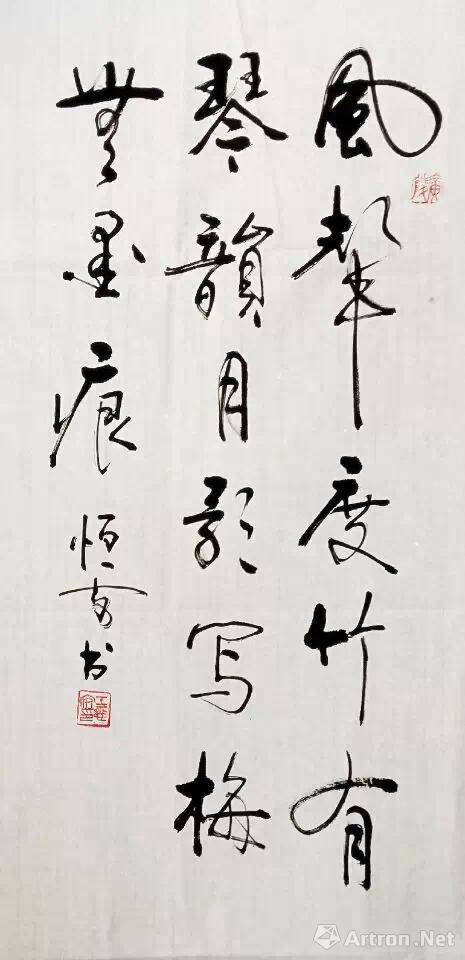 風聲度竹有
琴韻月影写梅
無墨痕
恒安书
Artron.Net